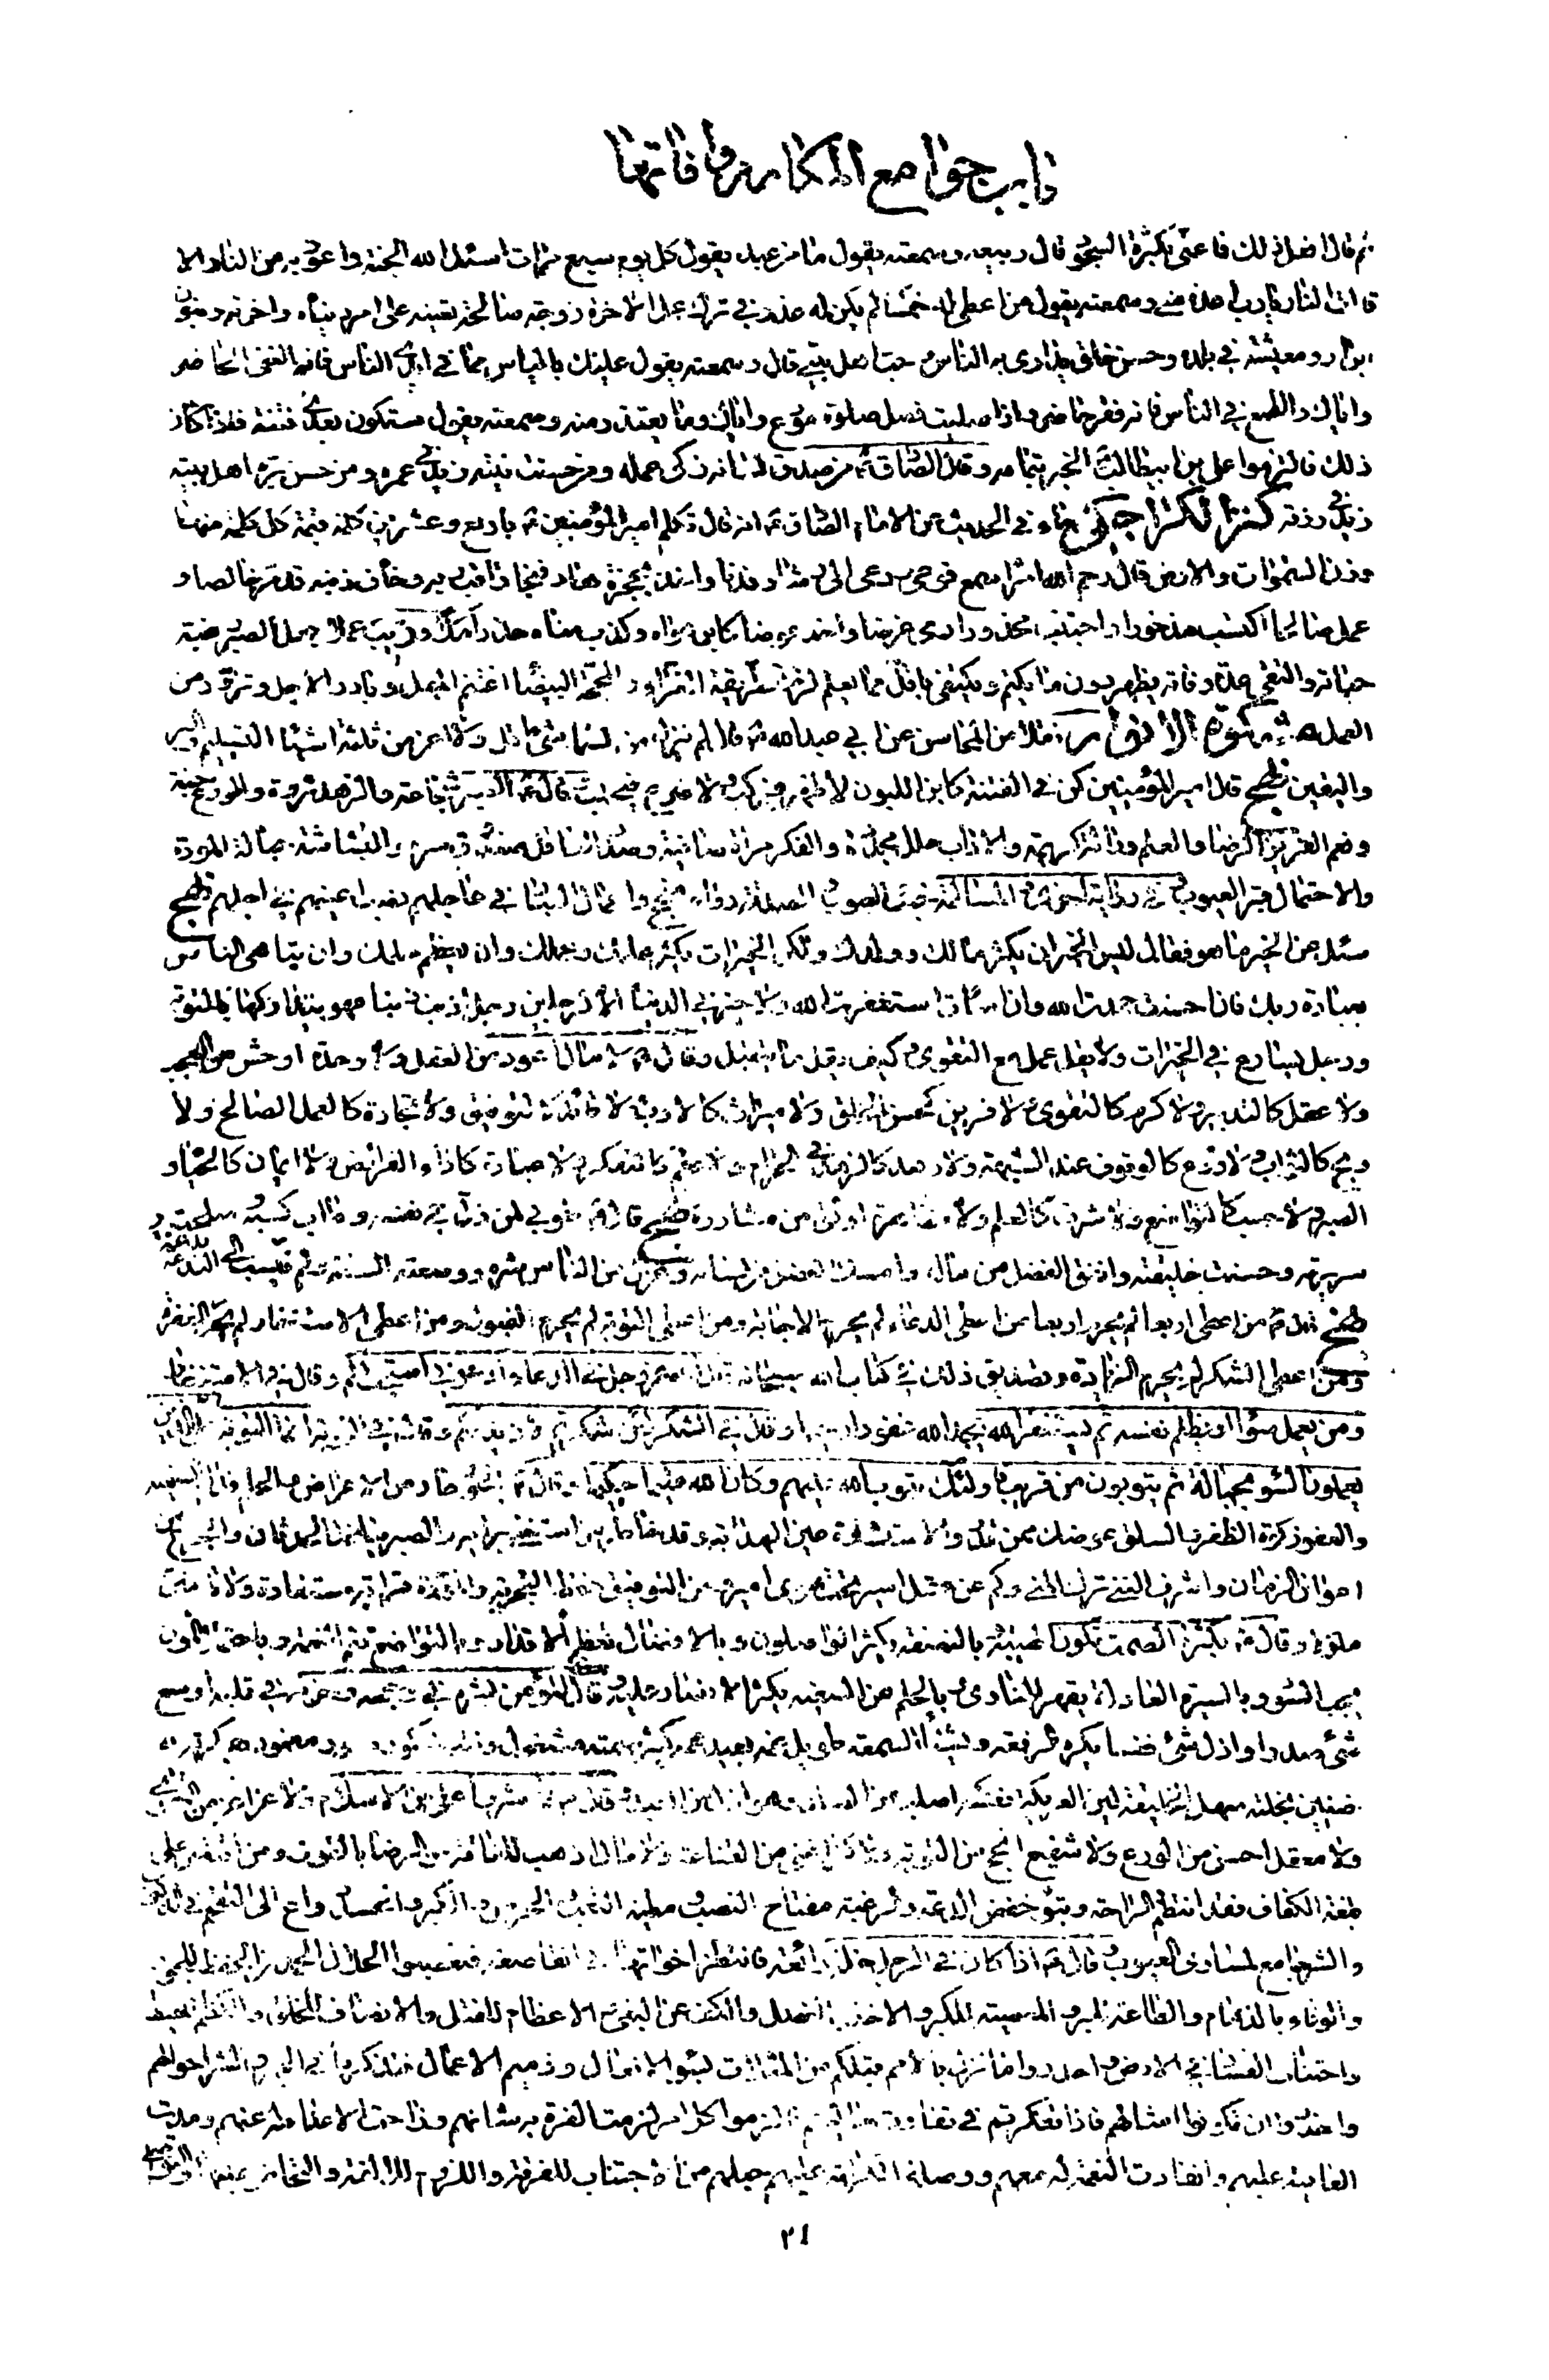 باب جوامع المكارم وآفاتها
ثم قال افضل ذلك فاعنى بكثرة السجود قال ربيعه وسمعته يقول ما من عبد يقول كل يوم سبع مرات اسئل الله الجنة واعوذ به من النار الا
قالت النار يا رب اعذه منى وسمعته يقول من اعطى خمسا لم يكن له عذر في ترك عمل الاخرة زوجة صالحة تعينه على امر دنياه واخرته وبنون
ابرار ومعيشة في بلده وحسن خلق يدارى به الناس وحب اهل بيتى قال وسمعته يقول عليك بالياس مما في ايدى الناس فانه الغنى الحاضر
واياك والطمع في الناس فانه فقر حاضر واذا صليت فصل صلوة مودع واياك وما يعتذر منه وسمعته يقول ستكون بعدى فتنة فاذا كان
ذلك فالتزموا على بن ابيطالب الخبر بتمامه وقال الصادق من صدق لسانه زكى عمله ومن حسنت نيته زيد في عمره ومن حسن بره اهل بيته
زيد في رزقه كنز الكراجكى جاء في الحديث عن الامام الصادق انه قال تكلم امير المؤمنين باربع وعشرين كلمة قيمة كل كلمة منها
وزن السموات والارض قال رحم الله امرا سمع فوعى ودعى الى رشاد فدنا واخذ بحجزة هاد فنجا راقب ربه وخاف ذنبه قدم خالصا و
عمل صالحا اكتسب مذخورا واجتنب محذورا رمى غرضا واخذ عوضا كابر هواه وكذب مناه حذر املا ورتب عملا جعل الصبر رغبة
حياته والتقى عدة وفاته يظهر دون ما يكتم ويكتفى باقل مما يعلم لزم الطريقة الغراء والمحجة البيضاء اغتنم المهل وبادر الاجل وتزود من
العمل مشكوة الانوار نقلا من المحاسن عن ابي عبد الله قال لم ينزل من السماء شئ اقل ولا اعز من ثلثة اشياء التسليم والبر
واليقين نهج قال امير المؤمنين كن في الفتنة كابن اللبون لا ظهر فيركب ولا ضرع فيحلب وقال الصبر شجاعة والزهد ثروة والورع جنة
ونعم القرين الرضا والعلم وراثة كريمة والاداب حلل مجددة والفكر مراة صافية وصدر العاقل صندوق سره والبشاشة حبالة المودة
والاحتمال قبر العيوب وفي رواية اخرى المسالمة خبء العيوب الصدقة دواء منجح واعمال العباد في عاجلهم نصب اعينهم في اجلهم نهج
سئل عن الخير ما هو فقال ليس الخير ان يكثر مالك وولدك ولكن الخير ان يكثر علمك وعملك وان يعظم حلمك وان تباهى الناس
بعبادة ربك فان احسنت حمدت الله وان اسات استغفرت الله ولا خير في الدنيا الا لرجلين رجل اذنب ذنوبا فهو يتداركها بالتوبة
ورجل يسارع في الخيرات ولا يقل عمل مع التقوى وكيف يقل ما يتقبل وقال لا مال اعود من العقل ولا وحدة اوحش من العجب
ولا عقل كالتدبير ولا كرم كالتقوى ولا قرين كحسن الخلق ولا ميراث كالادب ولا قائد كالتوفيق ولا تجارة كالعمل الصالح ولا
ربح كالثواب ولا ورع كالوقوف عند الشبهة ولا زهد كالزهد في الحرام ولا علم كالتفكر ولا عبادة كاداء الفرائض ولا ايمان كالحياء و
الصبر ولا حسب كالتواضع ولا شرف كالعلم ولا مظاهرة اوثق من مشاورة نهج قال طوبى لمن ذل في نفسه وطاب كسبه وصلحت
سريرته وحسنت خليقته وانفق الفضل من ماله وامسك الفضل من لسانه وعزل عن الناس شره ووسعته السنة ولم ينسب الى البدعة
نهج قال من اعطى اربعا لم يحرم اربعا من اعطى الدعاء لم يحرم الاجابة ومن اعطى التوبة لم يحرم القبول ومن اعطى الاستغفار لم يحرم المغفرة
ومن اعطى الشكر لم يحرم الزيادة وتصديق ذلك في كتاب الله سبحانه قال الله عز وجل في الدعاء ادعونى استجب لكم وقال في الاستغفار
ومن يعمل سوا او يظلم نفسه ثم يستغفر الله يجد الله غفورا رحيما وقال في الشكر لئن شكرتم لازيدنكم وقال في التوبة انما التوبة على الله للذين
يعملون السوء بجهالة ثم يتوبون من قريب فاولئك يتوب الله عليهم وكان الله عليما حكيما وقال الجود حارس الاعراض والحلم فدام السفيه
والعفو زكوة الظفر والسلو عوضك ممن غدر والاستشارة عين الهداية وقد خاطر من استغنى برايه والصبر يناضل الحدثان والجزع من
اعوان الزمان واشرف الغنى ترك المنى وكم من عقل اسير تحت هوى امير ومن التوفيق حفظ التجربة والمودة قرابة مستفادة ولا تامنن
ملولا وقال بكثرة الصمت تكون الهيبة وبالنصفة يكثر الواصلون وبالافضال تعظم الاقدار وبالتواضع تتم النعمة وباحتمال المؤن
يجب السؤدد وبالسيرة العادلة يقهر المناوى وبالحلم عن السفيه يكثر الانصار عليه وقال المؤمن بشره في وجهه وحزنه في قلبه اوسع
شئ صدرا واذل شئ نفسا يكره الرفعة ويشنا السمعة طويل غمه بعيد همه كثير صمته مشغول وقته شكور صبور مغمور بفكرته
ضنين بخلته سهل الخليقة لين العريكة نفسه اصلب من الصلد وهو اذل من العبد وقال لا شرف اعلى من الاسلام ولا عز اعز من التقوى
ولا معقل احسن من الورع ولا شفيع انجح من التوبة ولا كنز اغنى من القناعة ولا مال اذهب للفاقة من الرضا بالقوت ومن اقتصر على
بلغة الكفاف فقد انتظم الراحة وتبوء خفض الدعة والرغبة مفتاح النصب ومطية التعب والحرص والكبر والحسد دواع الى التقحم في الذنوب
والشر جامع لمساوى العيوب وقال اذا كان في الرجل خلة رائعة فانتظر اخواتها وفي القاصعة فتعصبوا لخلال الحمد من الحفظ للجوار
والوفاء بالذمام والطاعة للبر والمعصية للكبر والاخذ بالفضل والكف عن البغى والاعظام للقتل والانصاف للخلق والكظم للغيظ
واجتناب الفساد في الارض واحذروا ما نزل بالامم قبلكم من المثلات بسوء الافعال وذميم الاعمال فتذكروا في الخير والشر احوالهم
واحذروا ان تكونوا امثالهم فاذا تفكرتم في تفاوت حاليهم فالزموا كل امر لزمت العزة به شانهم وزاحت الاعداء له عنهم ومدت
العافية عليهم وانقادت النعمة له معهم ووصلت الكرامة عليه حبلهم من الاجتناب للفرقة واللزوم للالفة والتحاض عليها والتواصى
٢٤